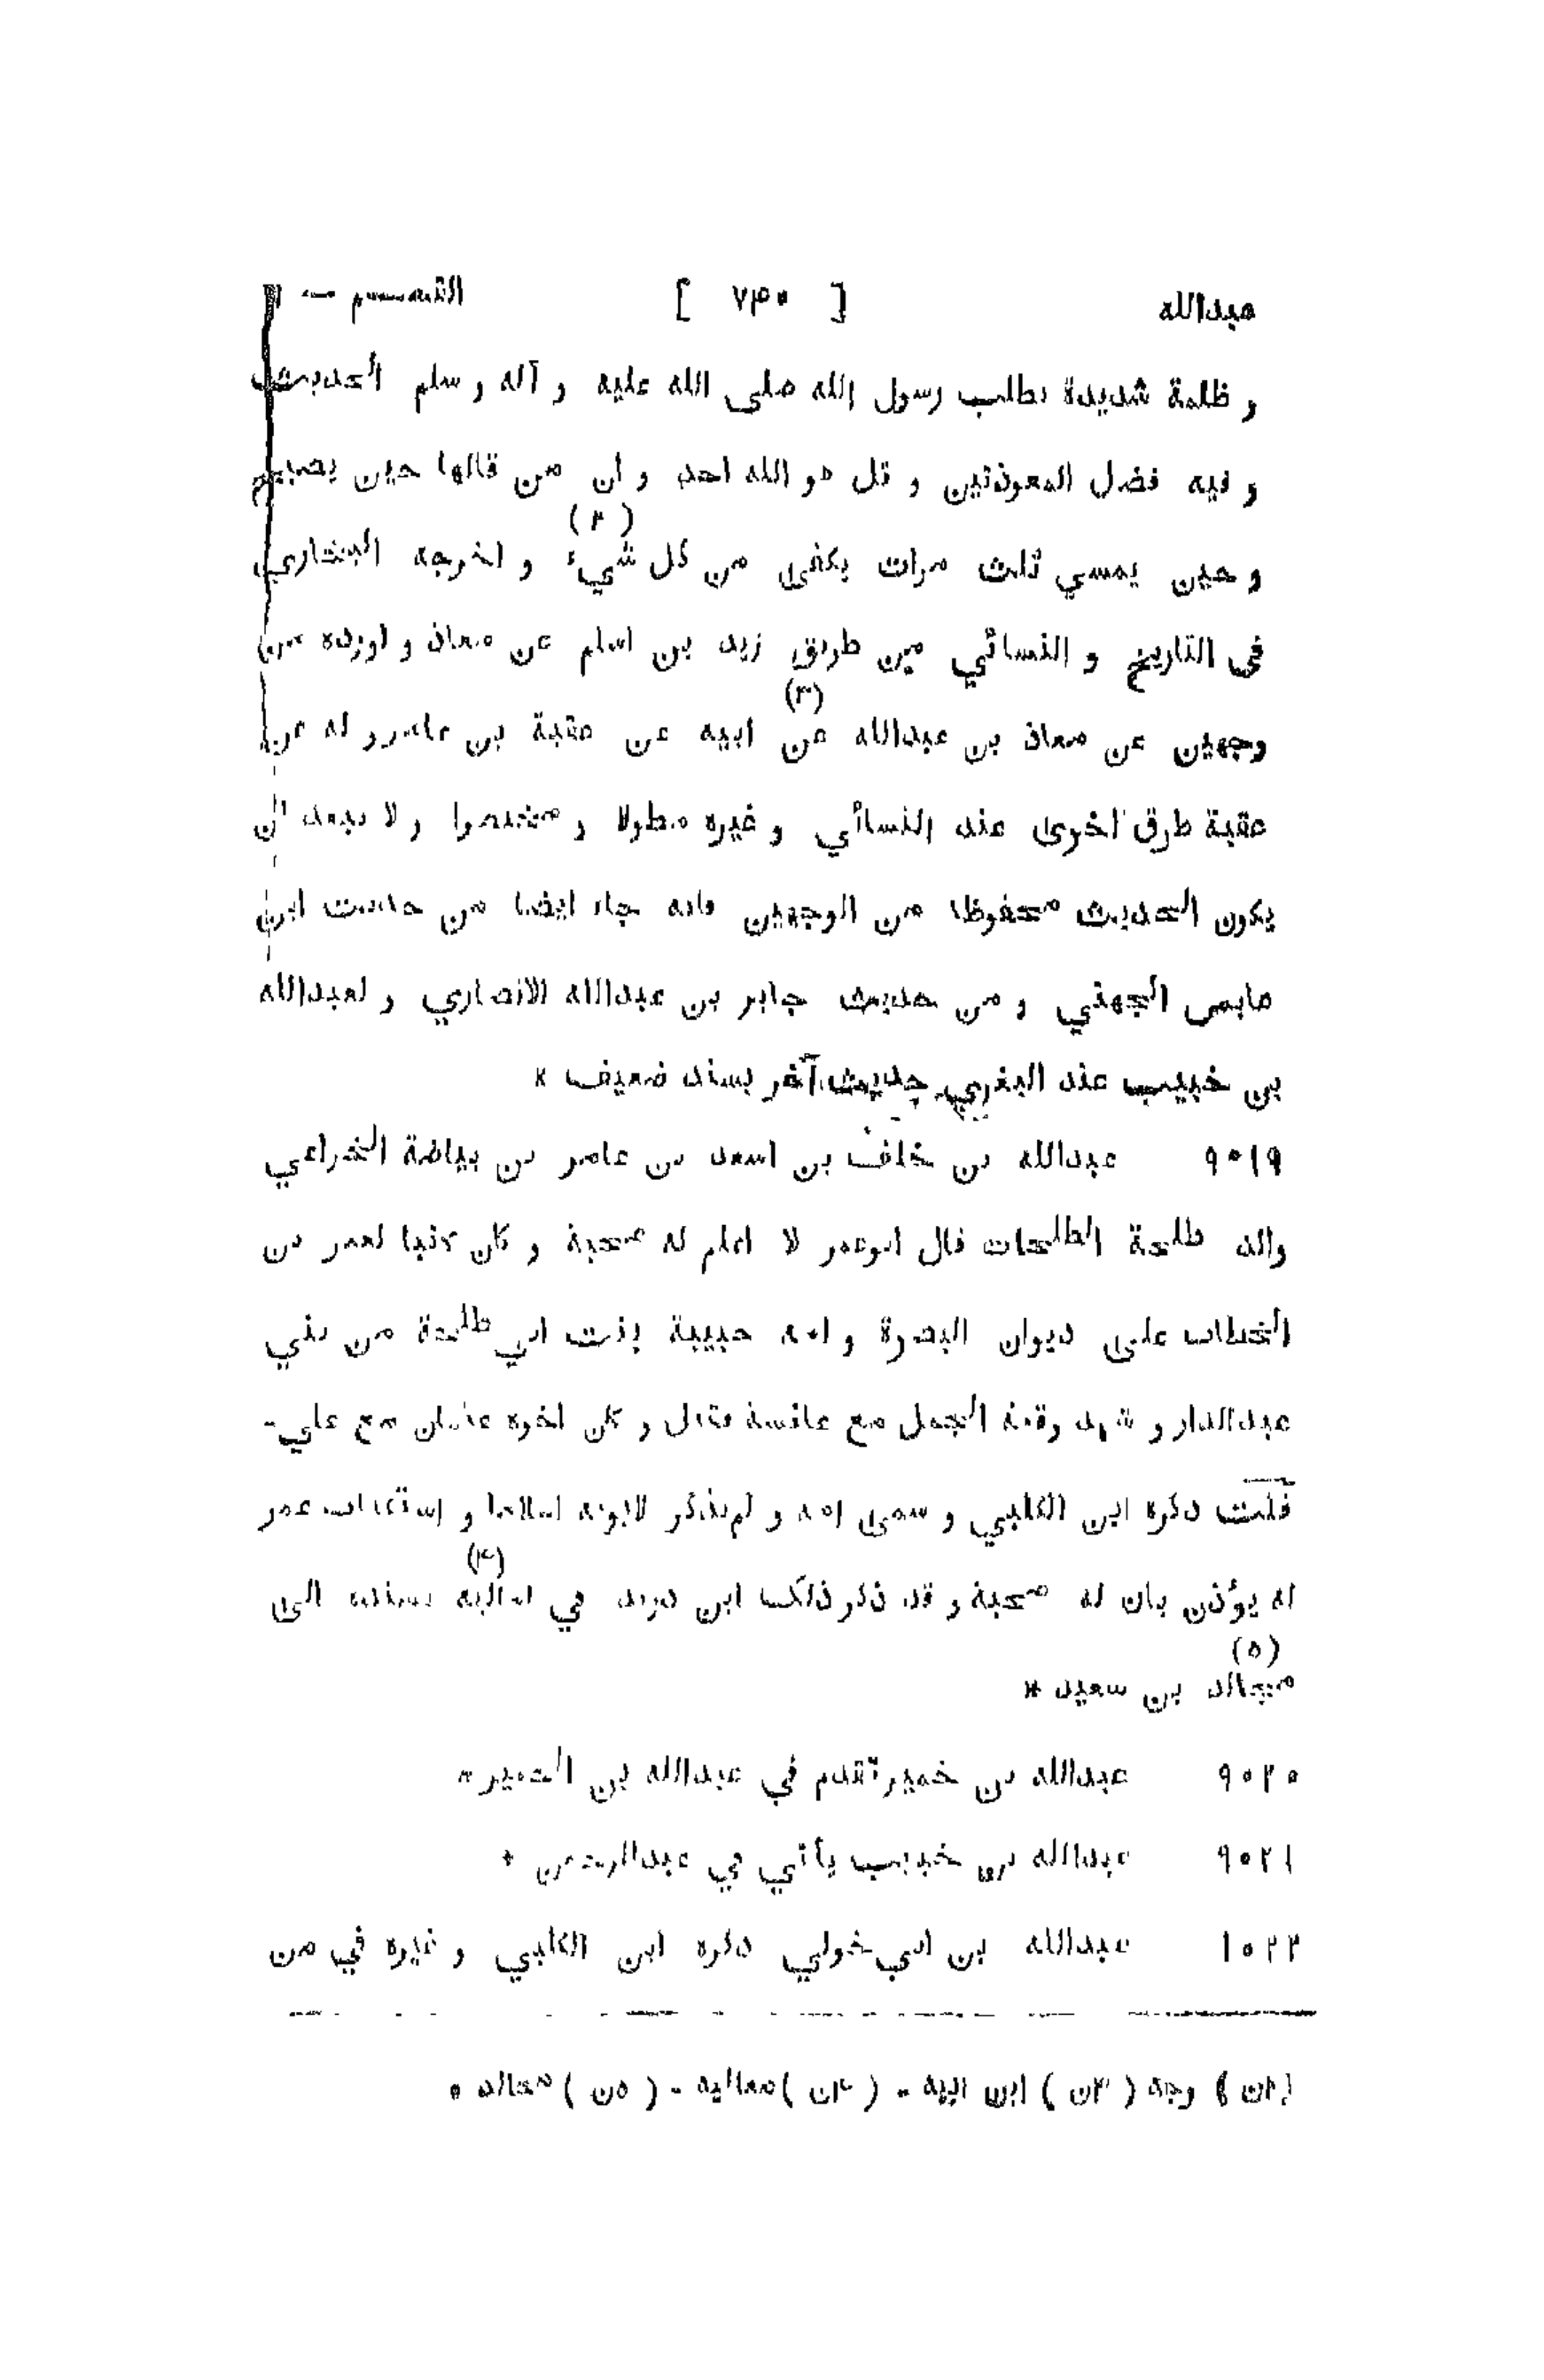 عبدالله [ ٧٤٠ ] القسم — ١
و ظلمة شديدة نطلب رسول الله صلى الله عليه و آله و سلم الحديث
و فيه فضل المعوذتين و قل هو الله احد و ان من قالها حين يصبح
و حين يمسي ثلث مرات يكفى من كل شيء (٢) و اخرجه البخاري
في التاريخ و النسائي من طريق زيد بن اسلم عن معاذ و اورده من
وجهين عن معاذ بن عبدالله عن (٣) ابيه عن عقبة بن عامر و له عن
عقبة طرق اخرى عند النسائي و غيره مطولا و مختصرا و لا يبعد ان
يكون الحديث محفوظا من الوجهين فانه جاء ايضا من حديث ابن
عابس الجهني و من حديث جابر بن عبدالله الانصاري و لعبدالله
بن خبيب عند البغوي حديث آخر بسند ضعيف *
٩٠١٩ عبدالله بن خلف بن اسعد بن عامر بن بياضة الخزاعي
والد طلحة الطلحات قال ابوعمر لا اعلم له صحبة و كان كاتبا لعمر بن
الخطاب على ديوان البصرة و امه حبيبة بنت ابي طلحة من بني
عبدالدار و شهد وقعة الجمل مع عائشة فقتل و كان اخوه عثمان مع علي-
قلت ذكره ابن الكلبي و سمى امه و لم يذكر لابويه اسلاما و استكتاب عمر
له يؤذن بان له صحبة و قد ذكر ذلك ابن دريد في اماليه (٤) بسنده الى
مجالد (٥) بن سعيد *
٩٠٢٠ عبدالله بن خمير تقدم في عبدالله بن الحمير *
٩٠٢١ عبدالله بن خبيب يأتي في عبدالرحمن *
١٠٢٢ عبدالله بن ابي خولي ذكره ابن الكلبي و غيره في من
(٢ن) وجه (٣ن) ابن ابيه - (٤ن) معاليه - (٥ن) مخالد *